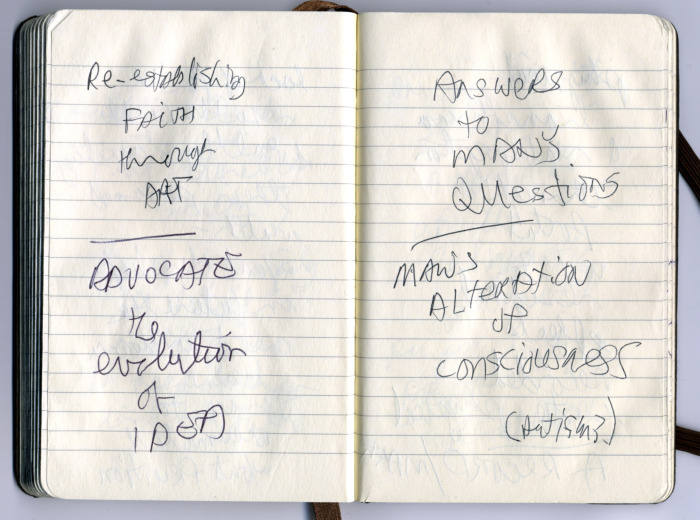 Re-establishing
FAITH
through
ART
ADVOCATE
the
evolution
of
IDEAS
Answers
to
MAN'S
Questions
MAN'S
ALteration
of
consciousness
(Autism?)